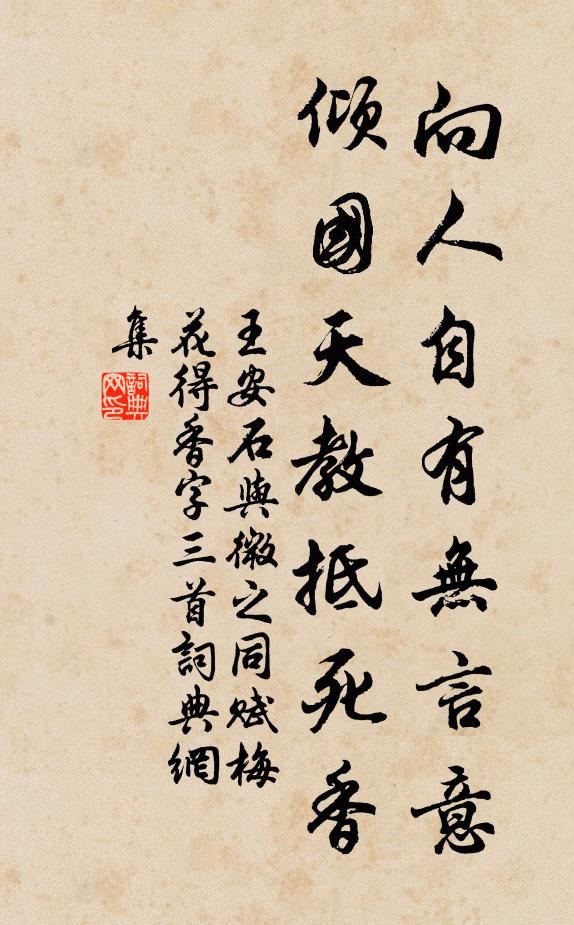 向人自有無言意
傾國天教抵死香
王安石與微之同賦梅
花得香字三首詞典網
集
詞典
网印